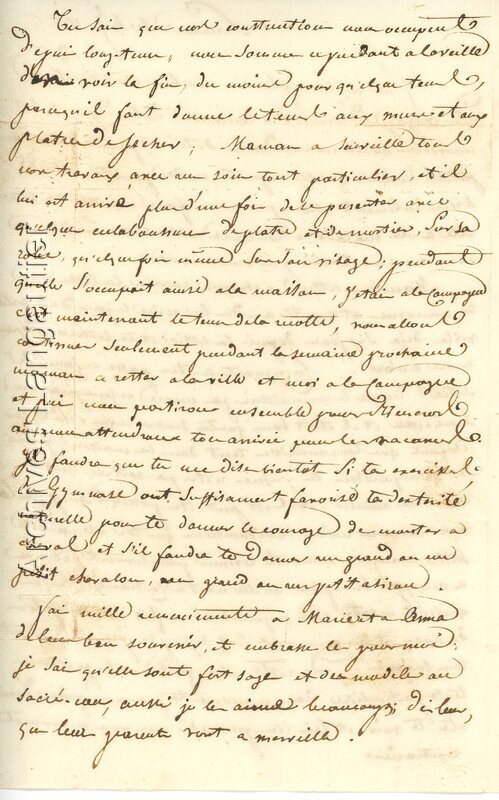 Tu sai que nos construction nous occupent
depui longtems, nous somme cependant a la veille
d'en voir la fin, du moins pour quelque tems,
parcequil faut donner le tems aux murs et aux
platre de secher; Maman a surveillé tous
nos travaux avec un soin tout particulier, et il
lui est arrivé plus d'une foi de se presenter avec
quelque eclaboussure de platre et de mortier, sur sa
robe, quelquefoi même sur son visage. pendant
quelle s'occupait ainsi a la maison, j'etais a la Campagne
c'est maintenant le tems de la recolte, nous allons
continuer seulement pendant la semaine prochaine
maman a rester a la ville et moi a la Campagne
et pui nous partirons ensemble pour
ou nous attendrons ton arrivée pour les vacances.
Il faudra que tu me dise bientot si tes exercises
Gymnase ont suffisament favorisé ta dexterité
naturelle pour te donner le courage de monter a
cheval et s'il faudra te donner un grand ou un
petit chevalon, un grand ou un petit
J'ai mille remerciments a Marie et a Anna
de leur bon souvenir, et embrasse le pour moi,
je sai qu'elle sont fort sage et des modele au
sacré-cœur, aussi je les aime beaucoup; dis leur,
que leur parents vont a merveille.
Archives Languaille